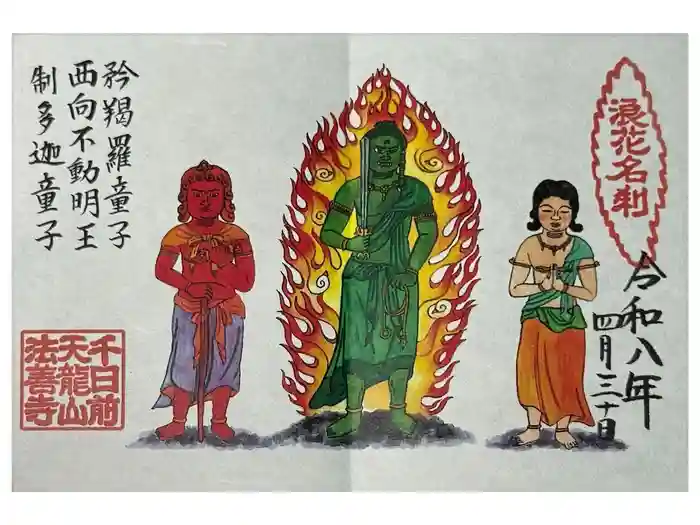 浪花名刹
令和八年
四月三十日
矜羯羅童子
西向不動明王
制多迦童子
千日前
天龍山
法善寺